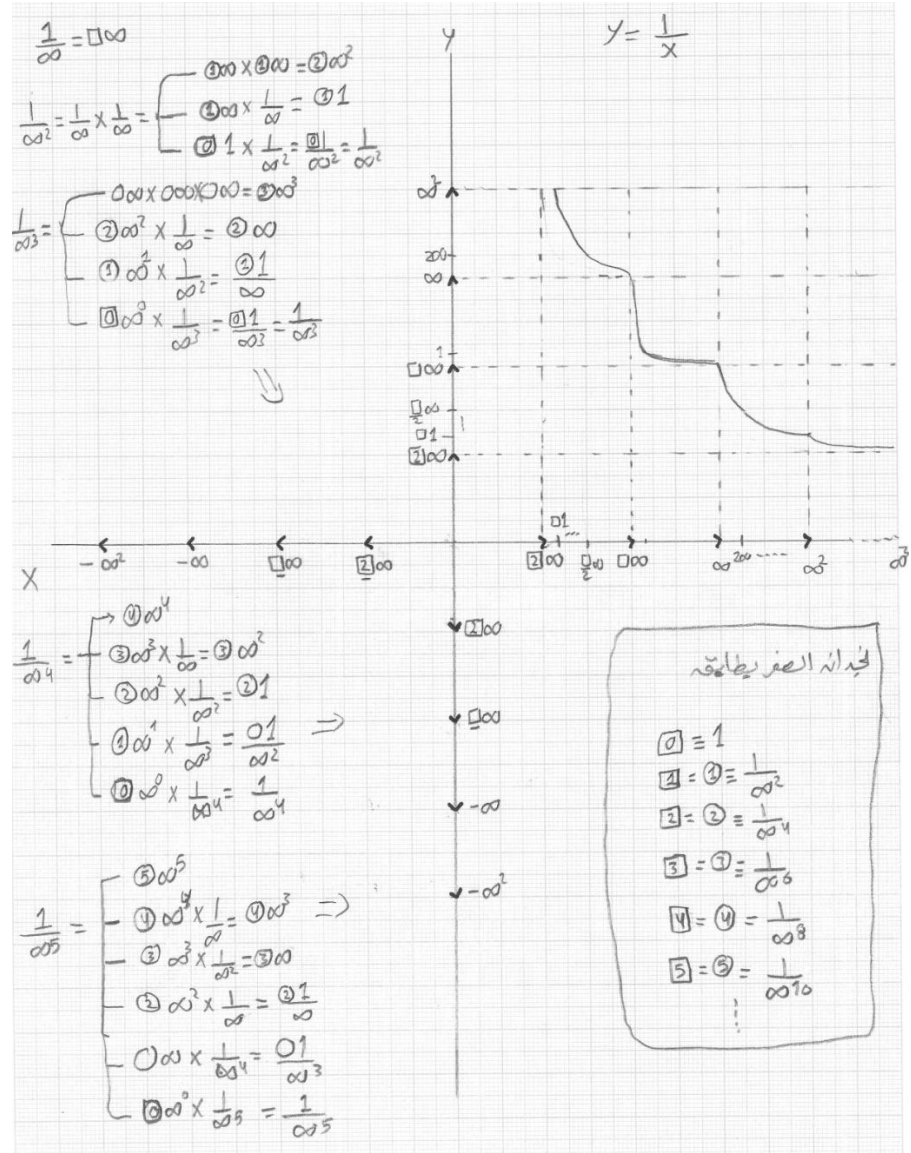 1/∞ = □∞
1/∞² = 1/∞ × 1/∞ =
①∞ × ①∞ = ②∞²
①∞ × 1/∞ = ①1
[0]1 × 1/∞² = [0]1/∞² = 1/∞²
1/∞³ =
○∞ × ○∞ × ○∞ = ③∞³
②∞² × 1/∞ = ②∞
①∞¹ × 1/∞² = ①1/∞
[0]∞⁰ × 1/∞³ = [0]1/∞³ = 1/∞³
⇓
y = 1/x
y
∞²
2∞
∞
1
□∞
□/2 ∞
□1
[2]∞
X
-∞²
-∞
□∞
[2]∞
[2]∞
□1
...
□/2 ∞
□∞
∞
2∞ -----
∞²
∞³
[2]∞
□∞
-∞
-∞²
1/∞⁴ =
④∞⁴
③∞³ × 1/∞ = ③∞²
②∞² × 1/∞² = ②1
①∞¹ × 1/∞³ = ○1/∞² ⇒
[0]∞⁰ × 1/∞⁴ = 1/∞⁴
1/∞⁵ =
⑤∞⁵
④∞⁴ × 1/∞ = ④∞³ ⇒
③∞³ × 1/∞² = ③∞
②∞² × 1/∞ = ②1/∞
○∞ × 1/∞⁴ = ○1/∞³
[0]∞⁰ × 1/∞⁵ = 1/∞⁵
نجد انه الصفر يطابق
[0] ≡ 1
[1] = ① ≡ 1/∞²
[2] = ② ≡ 1/∞⁴
[3] = ③ ≡ 1/∞⁶
[4] = ④ = 1/∞⁸
[5] = ⑤ = 1/∞¹⁰